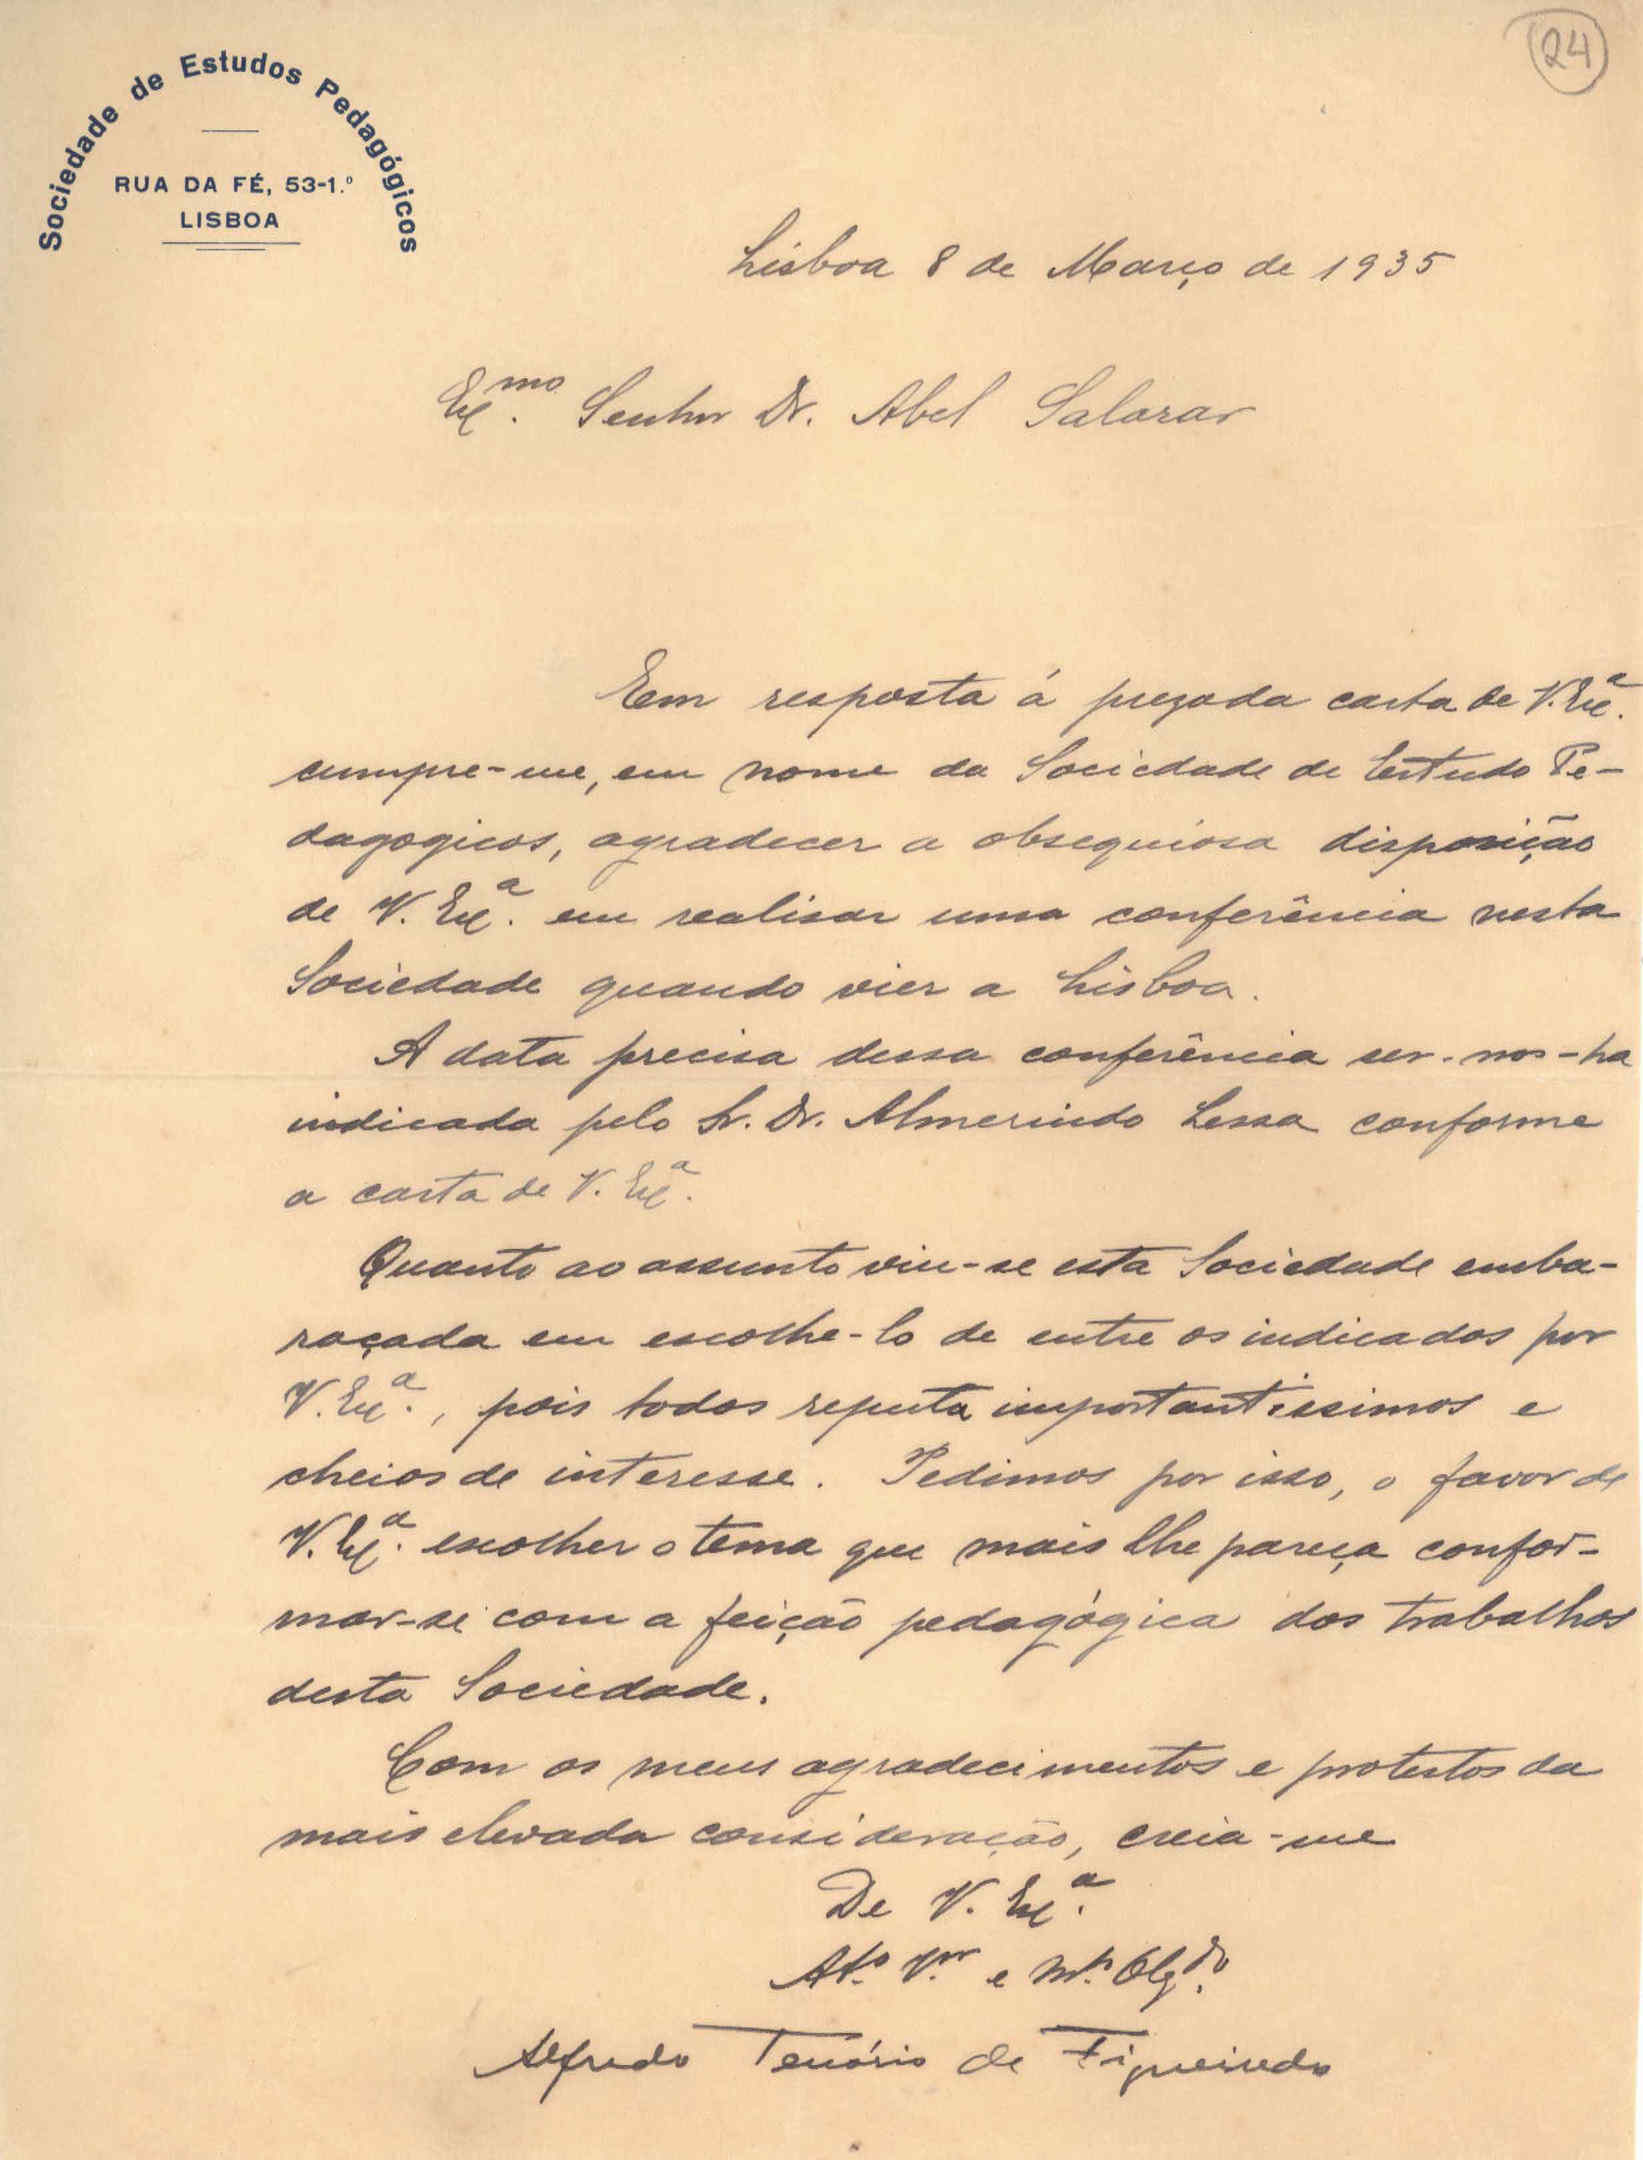 24
Sociedade de Estudos Pedagógicos
RUA DA FÉ, 53-1.º
LISBOA
Lisboa 8 de Março de 1935
Exmo. Senhor Dr. Abel Salazar
Em resposta á prezada carta de V. Exª.
cumpre-me, em nome da Sociedade de Estudo Pe-
dagogicos, agradecer a obsequiosa disposição
de V. Exª. em realisar uma conferência nesta
Sociedade quando vier a Lisboa.
A data precisa dessa conferência ser-nos-ha
indicada pelo Sr. Dr. Almerindo Lessa conforme
a carta de V. Exª.
Quanto ao assunto viu-se esta Sociedade emba-
raçada em escolhe-lo de entre os indicados por
V. Exª., pois todos reputa importantissimos e
cheios de interesse. Pedimos por isso, o favor de
V. Exª. escolher o tema que mais lhe pareça confor-
mar-se com a feição pedagógica dos trabalhos
desta Sociedade.
Com os meus agradecimentos e protestos da
mais elevada consideração, creia-me
De V. Exª.
Atº. Vor. e Mtº. Obgdo.
Alfredo Tenório de Figueiredo